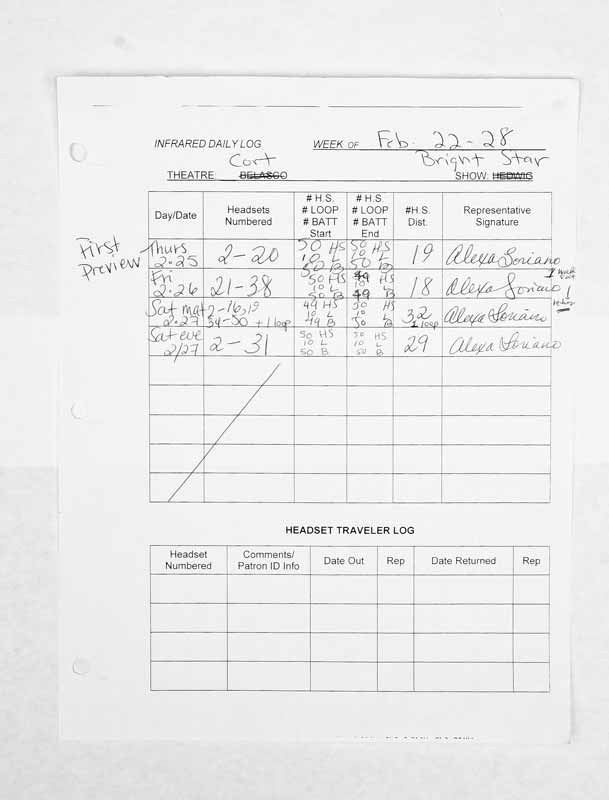 INFRARED DAILY LOG WEEK OF Feb. 22-28
Cort Bright Star
THEATRE: BELASCO SHOW: HEDWIG
Day/Date Headsets Numbered # H.S. # LOOP # BATT Start # H.S. # LOOP # BATT End #H.S. Dist. Representative Signature
First Preview
Thurs 2.25 2-20 50 HS 10 L 50 B 50 HS 10 L 50 B 19 Alexa Soriano
Fri 2.26 21-38 50 HS 10 L 50 B 49 HS 10 L 49 B 18 Alexa Soriano
Sat mat 2.27 2-16,19 34-50 +1 loop 49 HS 10 L 49 B 50 HS 10 L 50 B 32 1 loop Alexa Soriano
Sat eve 2/27 2-31 50 HS 10 L 50 B 50 HS 10 L 50 B 29 Alexa Soriano
HEADSET TRAVELER LOG
Headset Numbered Comments/ Patron ID Info Date Out Rep Date Returned Rep